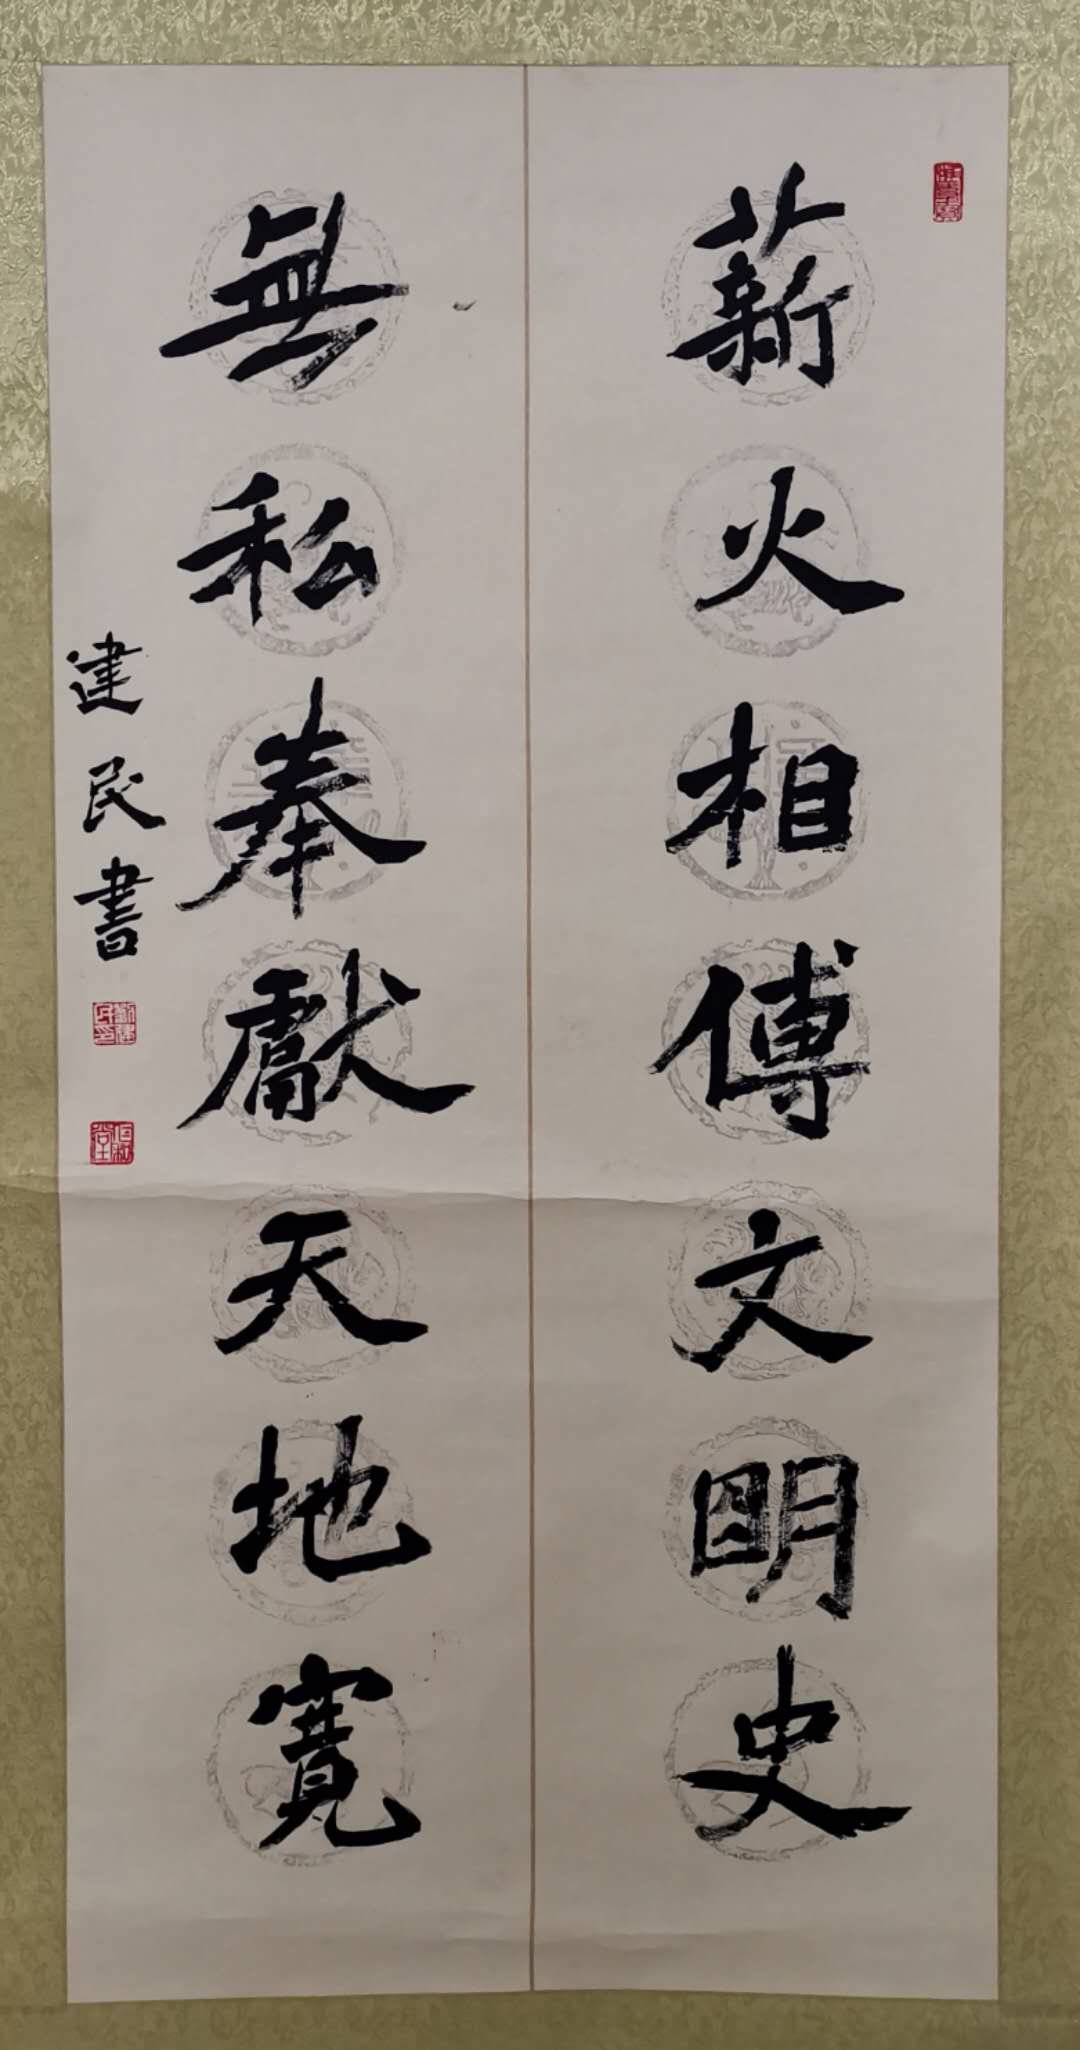 薪火相傳文明史
無私奉獻天地寬
建民書